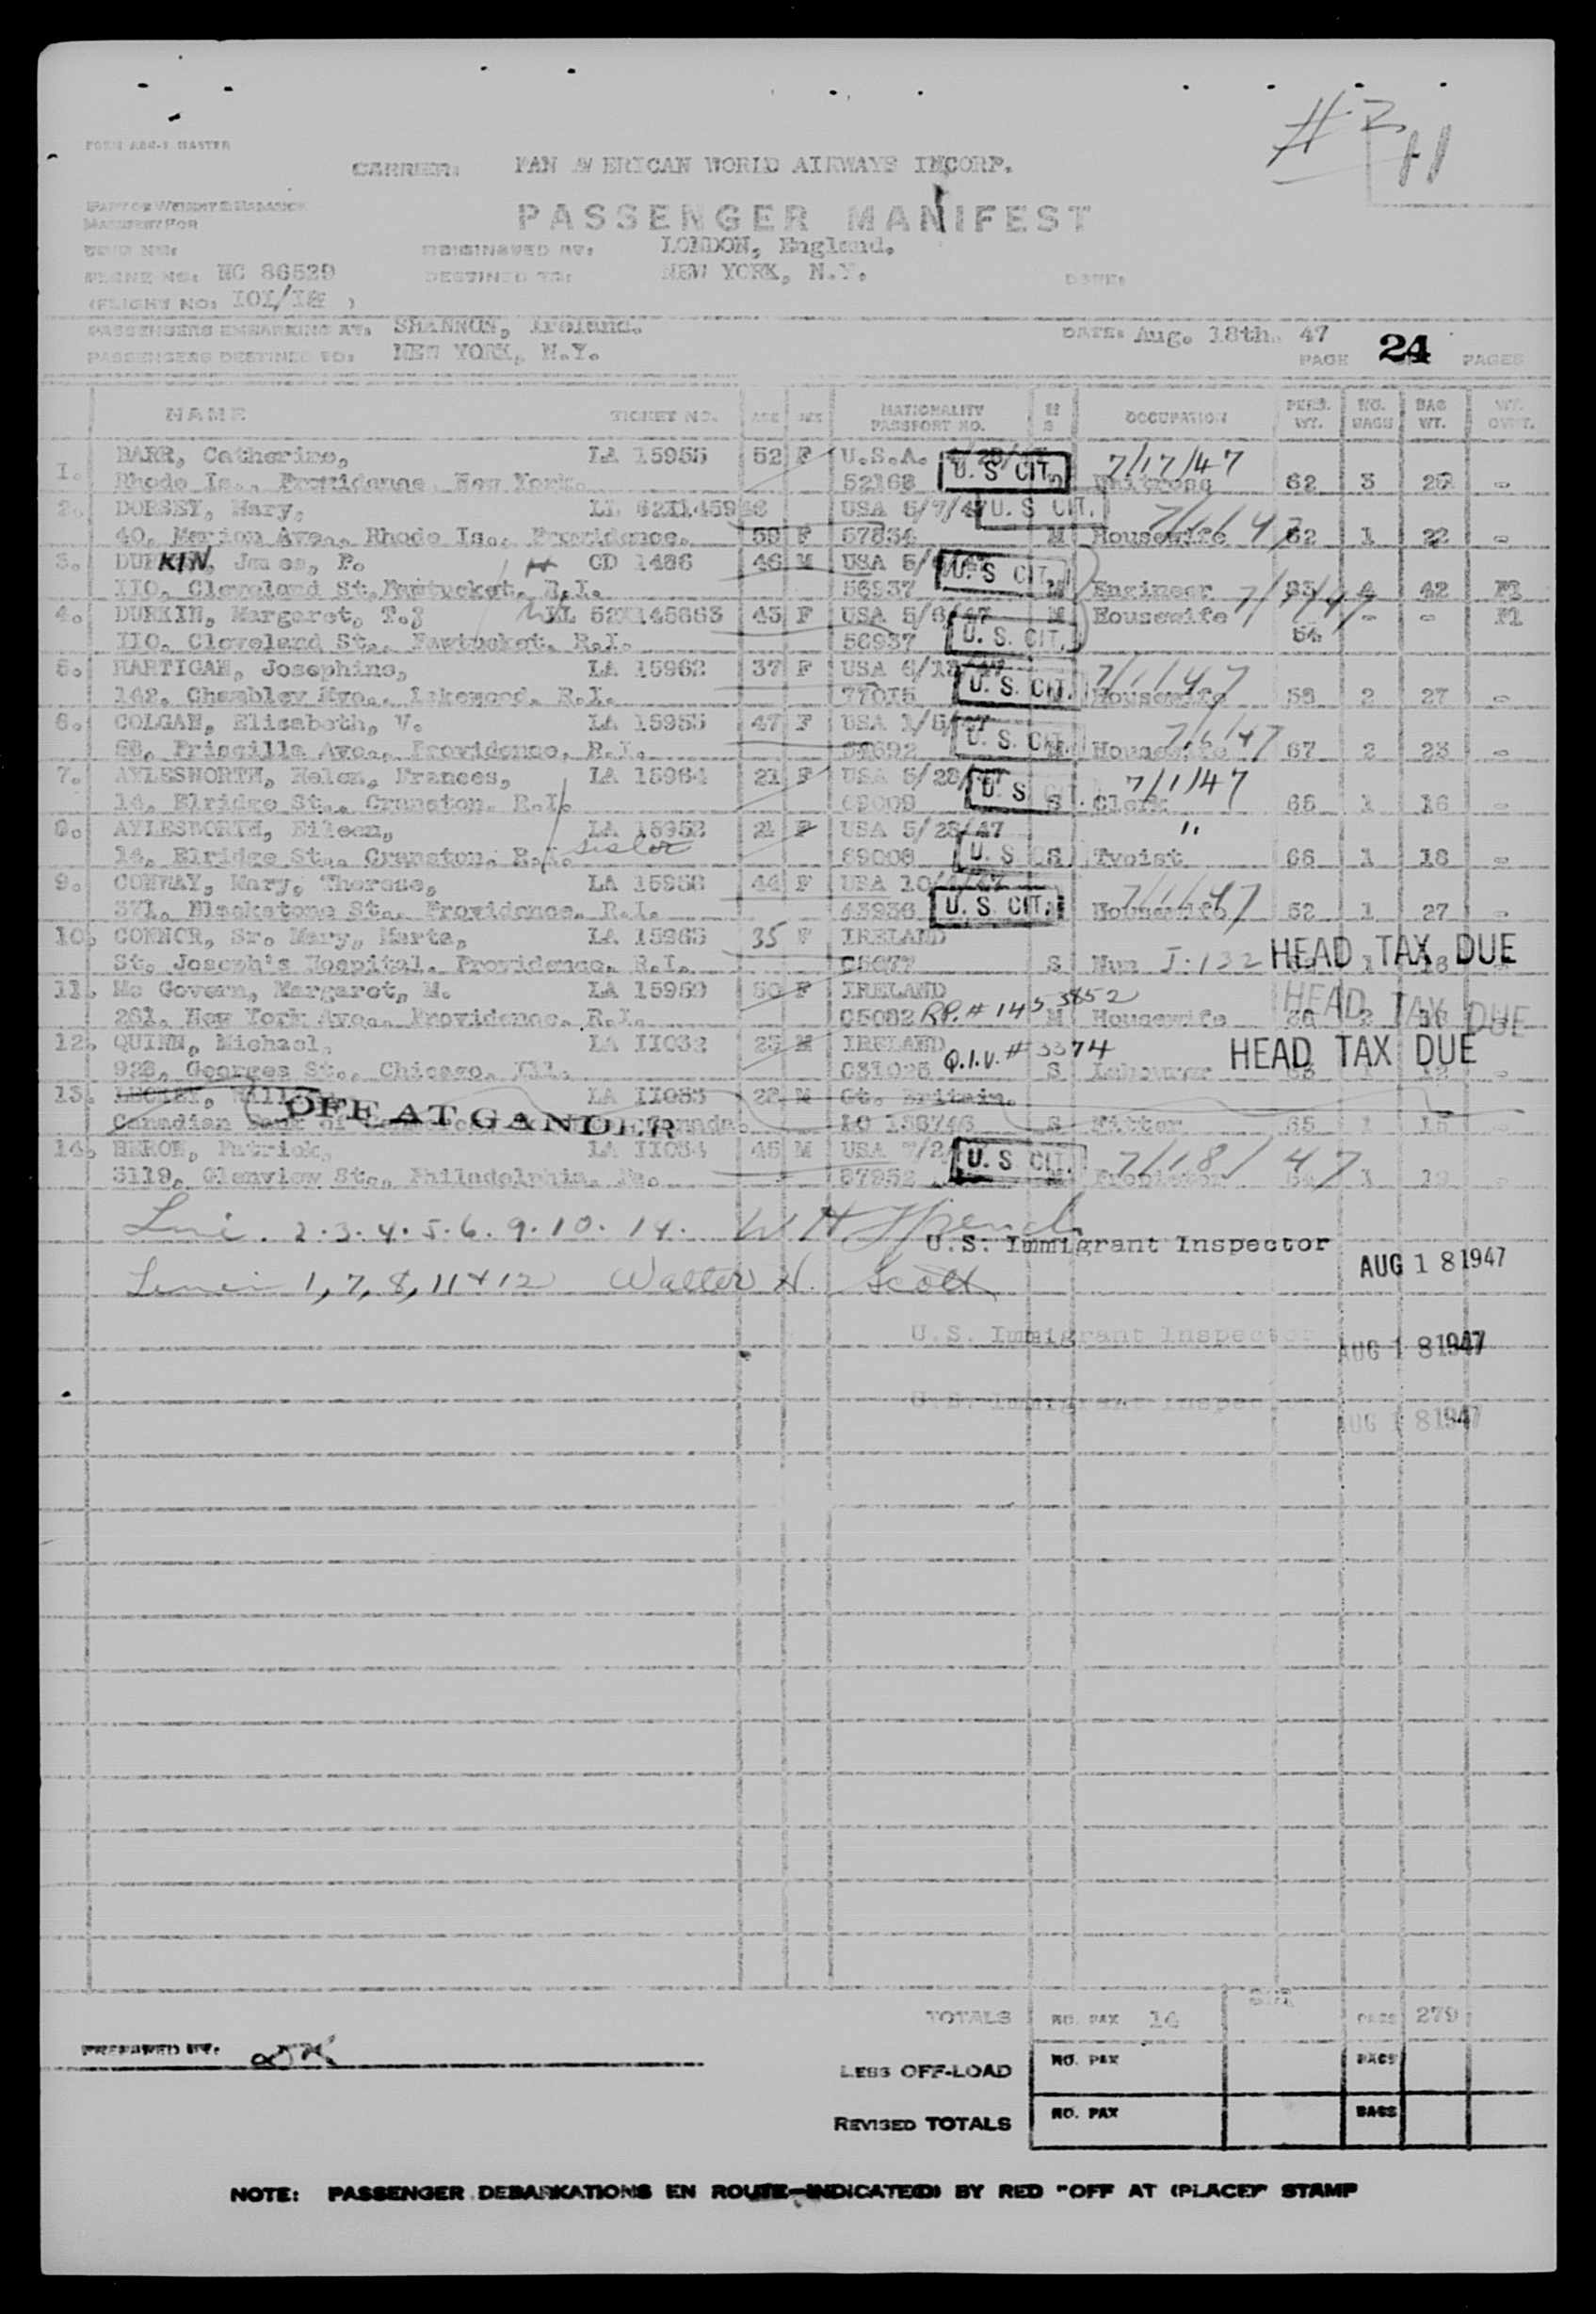 # 2
11
FORM ABC-1 MASTER
CARRIER: PAN AMERICAN WORLD AIRWAYS INCORP.
PASSENGER MANIFEST
ORIGINATED AT: LONDON, England.
PLANE NO: NC 86529 DESTINED TO: NEW YORK, N.Y. DATE:
(FLIGHT NO: 101/18 )
PASSENGERS EMBARKING AT: SHANNON, Ireland. DATE: Aug. 18th. 47
PASSENGERS DESTINED TO: NEW YORK, N.Y. PAGE 24 PAGES
NAME TICKET NO. AGE SEX NATIONALITY PASSPORT NO. M S OCCUPATION PERS. WT. NO. BAGS BAG WT.
1. BARR, Catherine, LA 15955 52 F U.S.A. U. S CIT. 7/17/47
Rhode Is., Providence, New York. 52168 Waitress 62 3 26 -
2. DORSEY, Mary, USA 5/7/47 U. S CIT. 7/1/47
40, Marion Ave., Rhode Is., Providence. 59 F 57834 M Housewife 62 1 22 -
3. DURKIN, James, P. CD 1486 46 M USA U. S CIT.
110, Cleveland St. Pawtucket, R.I. 56937 M Engineer 7/1/47 85 4 42 F1
4. DURKIN, Margaret, T. 43 F USA 5/6/47 M Housewife - - F1
110, Cleveland St., Pawtucket, R.I. 56937 U. S. CIT. 54
5. HARTIGAN, Josephine, LA 15962 37 F USA 6/12/47 7/1/47
142, Chambley Ave., Lakewood, R.I. 77015 U. S. CIT. Housewife 58 2 27 -
6. COLGAN, Elizabeth, V. LA 15955 47 F USA 7/1/47
68, Priscilla Ave., Providence, R.I. U. S. CIT. M Housewife 67 2 23 -
7. AYLESWORTH, Helen, Frances, LA 15964 21 F USA 5/28/47 7/1/47
14, Elridge St., Cranston, R.I. 69009 U. S S Clerk 65 1 16 -
8. AYLESWORTH, Eileen, LA 15952 21 F USA 5/28/47 "
14, Elridge St., Cranston, R.I. sister 69008 U. S S Typist 66 1 18 -
9. CONWAY, Mary, Therese, LA 15958 44 F USA 7/1/47
371, Blackstone St., Providence, R.I. 43936 U. S. CIT. Housewife 52 1 27 -
10. CONNOR, Sr. Mary, Marta, LA 15965 35 F IRELAND
St. Joseph's Hospital, Providence, R.I. C5677 S Nun J-132 HEAD TAX DUE
11. Mc Govern, Margaret, M. LA 15959 50 F IRELAND
281, New York Ave., Providence, R.I. C5082 RP. # 1453852 M Housewife HEAD TAX DUE
12. QUINN, Michael, LA 11032 23 M IRELAND
928, Georges St., Chicago, Ill. Q.I.V. # 3374 S Labourer HEAD TAX DUE
13. LA 11033 28 M Gt. Britain.
Canadian Bank of Canada. OFF AT GANDER S Fitter 65 1 15 -
14. HERON, Patrick, LA 11034 45 M USA U. S CIT. 7/18/47
3119, Glenview St., Philadelphia, Pa. 87952 1 19 -
Line. 2.3.4.5.6.9.10.14. W H Spend
U.S. Immigrant Inspector AUG 18 1947
Lines 1, 7, 8, 11 + 12 Walter H. Scott
U.S. Immigrant Inspector AUG 18 1947
U.S. Immigrant Inspector AUG 18 1947
TOTALS NO. PAX 14 BAGS 279
PREPARED BY.
LESS OFF-LOAD NO. PAX BAGS
REVISED TOTALS NO. PAX BAGS
NOTE: PASSENGER DEBARKATIONS EN ROUTE INDICATED BY RED "OFF AT (PLACE)" STAMP